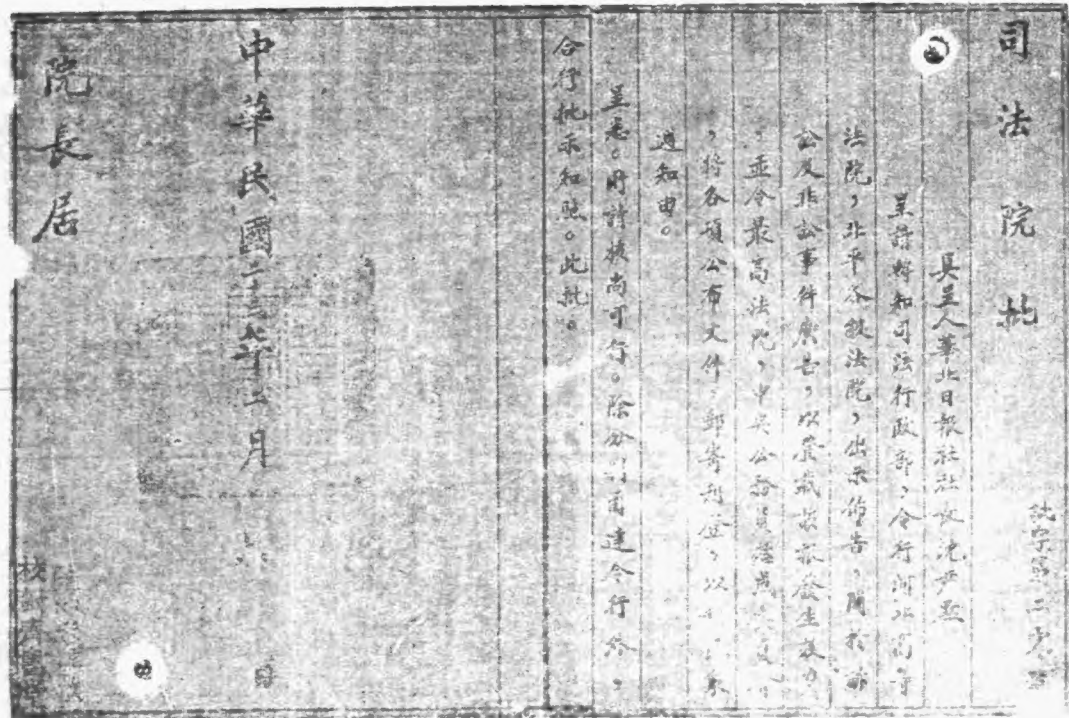 司法院批
批字第二零號
具呈人華北日報社社長沈尹默
呈請轉知司法行政部,令行河北高等
法院,北平各級法院,出示佈告,關於訴
訟及非訟事件廣告,以登載該報發生效力,
,並令最高法院,中央公務員懲戒委員
,將各項公布文件,郵寄刊登,以
通知由。
呈悉。所請核尚可行。除分別函達令行外,
合行批示知照。此批。
中華民國二十三年二月 六 日
院長居
校對